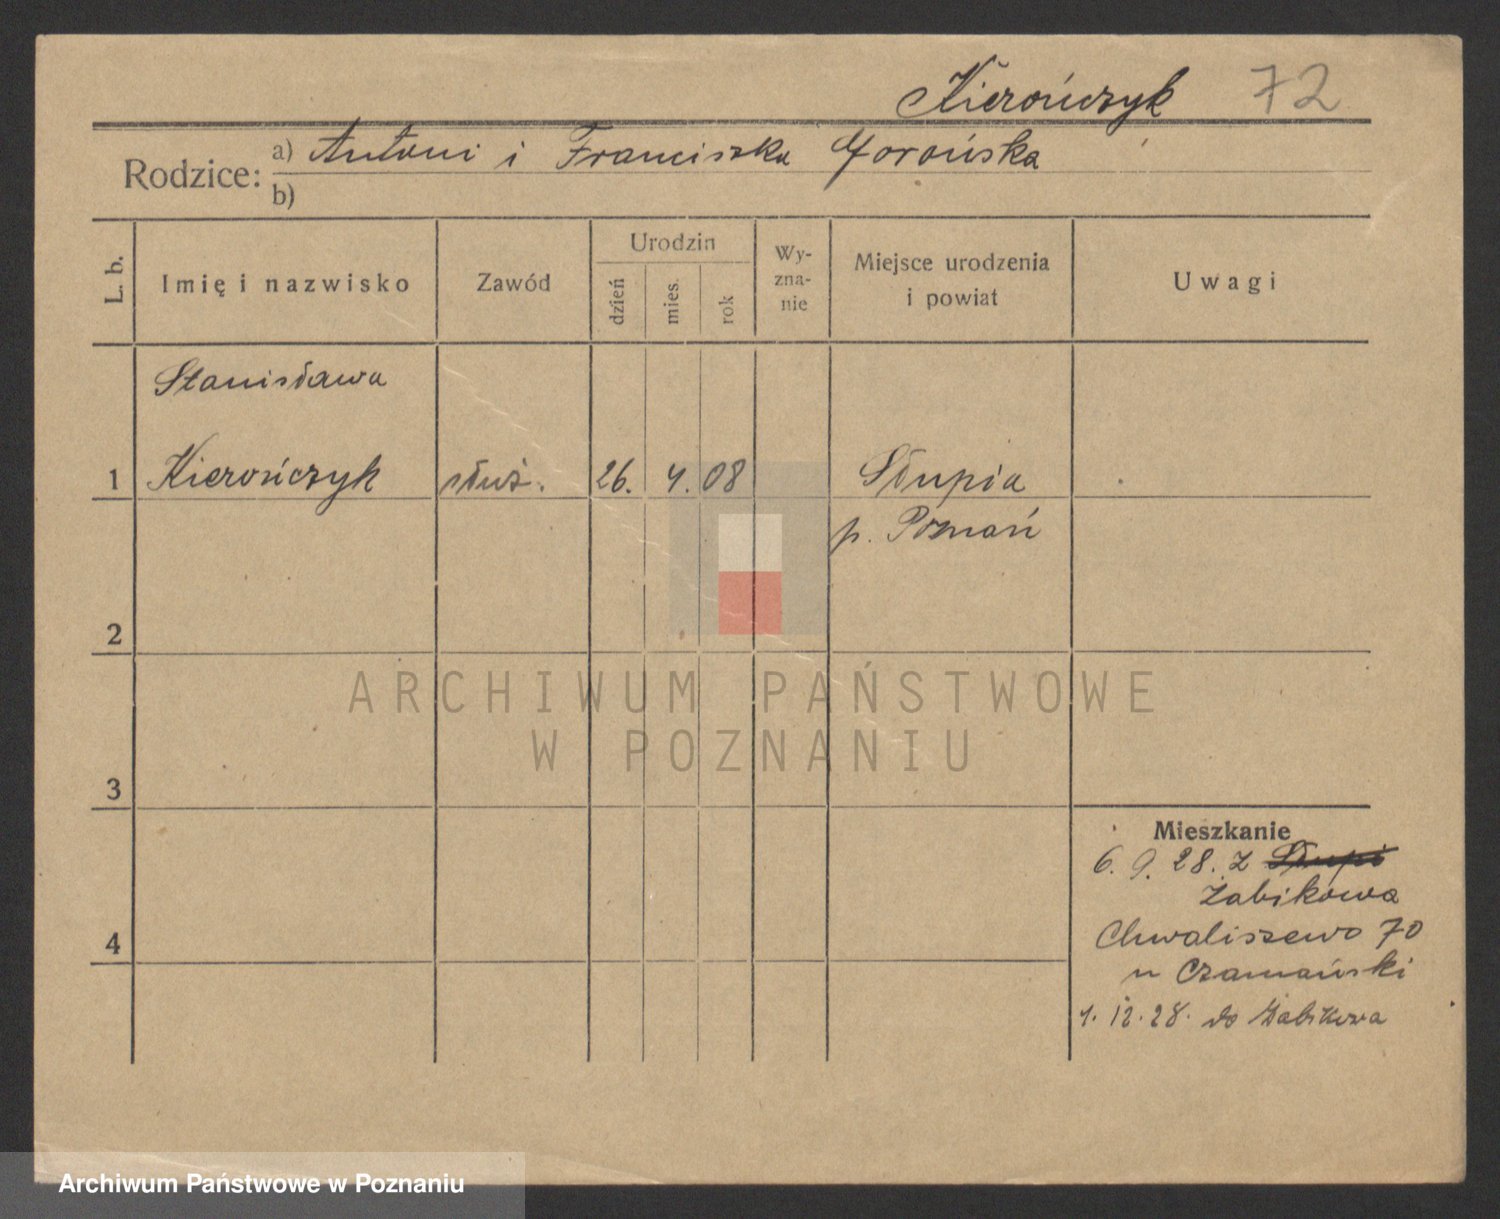 Kierończyk 72
Rodzice: a) Antoni i Franciszka Gorońska
b)
L. b.
Imię i nazwisko
Zawód
Urodzin
dzień
mies.
rok
Wy-
zna-
nie
Miejsce urodzenia
i powiat
Uwagi
Stanisława
1 Kierończyk służ. 26. 4. 08 Słupia
p. Poznań
2
3
4
Mieszkanie
6. 9. 28. z Słupi
Żabikowa
Chwaliszewo 70
u Czamański
1. 12. 28. do Żabikowa
ARCHIWUM PAŃSTWOWE
W POZNANIU
Archiwum Państwowe w Poznaniu